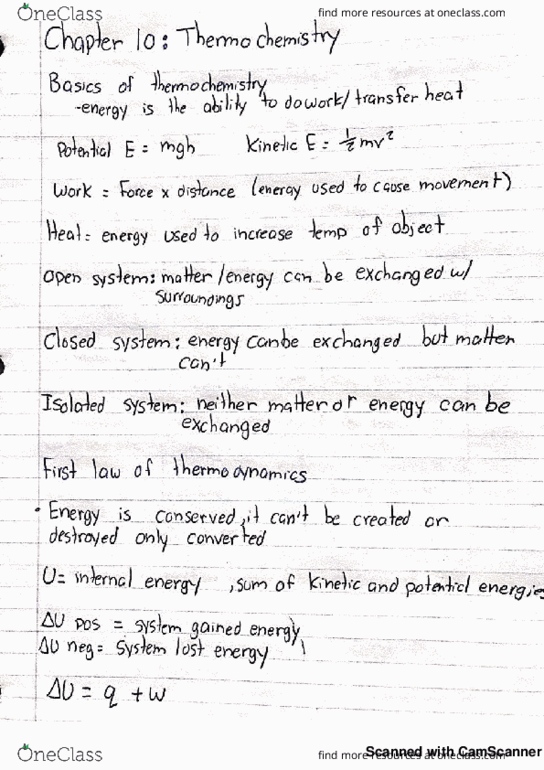 OneClass
find more resources at oneclass.com
Chapter 10: Thermochemistry
Basics of thermochemistry
-energy is the ability to do work/transfer heat
Potential E = mgh Kinetic E = ½mv²
Work = Force x distance (energy used to cause movement)
Heat = energy used to increase temp of object
Open system: matter/energy can be exchanged w/
surroundings
Closed system: energy can be exchanged but matter
can't
Isolated system: neither matter or energy can be
exchanged
First law of thermodynamics
• Energy is conserved, it can't be created or
destroyed only converted
U = internal energy, sum of kinetic and potential energies
ΔU pos = system gained energy
ΔU neg = system lost energy
ΔU = q + w
OneClass
find more resources at oneclass.com
Scanned with CamScanner